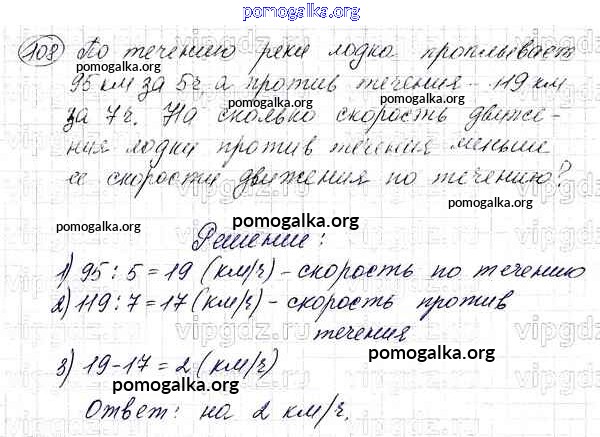 pomogalka.org
108 По течению реки лодка проплывает
pomogalka.org pomogalka.org
95 км за 5ч, а против течения - 119 км
pomogalka.org pomogalka.org
за 7 ч. На сколько скорость движе-
ния лодки против течения меньше
pomogalka.org
ее скорости движения по течению?
pomogalka.org pomogalka.org pomogalka.org
Решение:
1) 95 : 5 = 19 (км/ч) - скорость по течению
2) 119 : 7 = 17 (км/ч) - скорость против
течения
3) 19 - 17 = 2 (км/ч)
pomogalka.org
pomogalka.org
Ответ: на 2 км/ч.